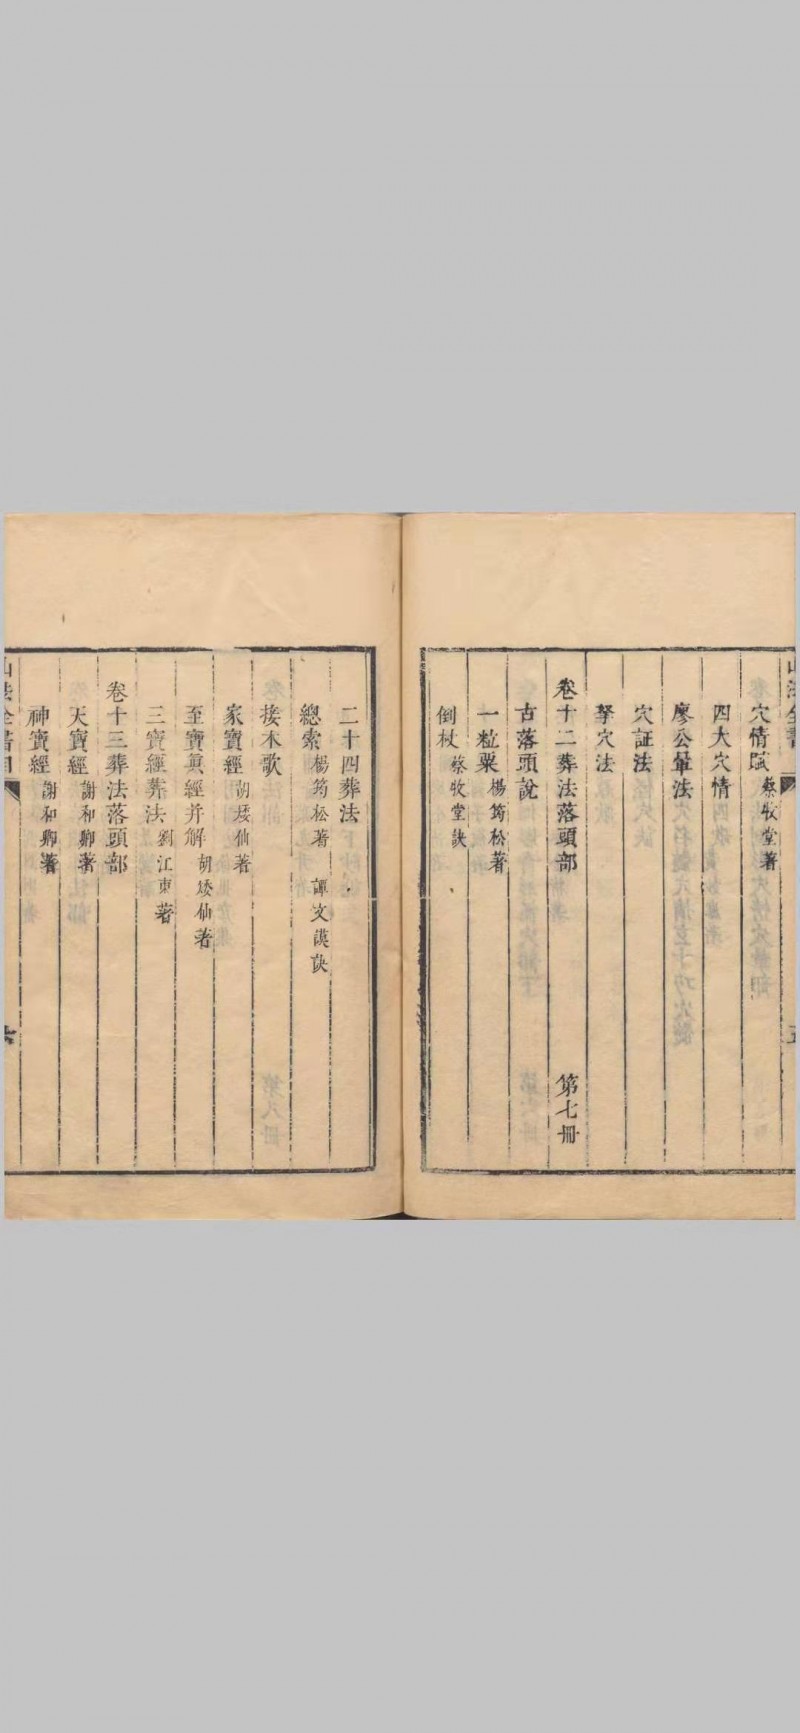 穴情賦 蔡牧堂著
四大穴情
廖公暈法
穴証法
拏穴法
卷十二葬法落頭部 第七冊
古落頭說
一粒粟 楊筠松著
倒杖 蔡牧堂訣
二十四葬法
總索 楊筠松著 譚文謨訣
接木歌
家寶經 胡矮仙著
至寶眞經并解 胡矮仙著
三寶經葬法 劉江東著
卷十三葬法落頭部
天寶經 謝和卿著
神寶經 謝和卿著